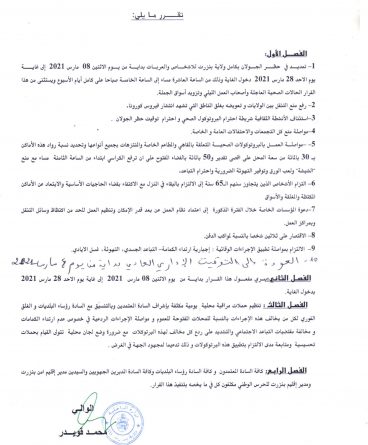 تقـــرر مـا يـلي:
الفصـل الأول:
1- تمديد في حظر الجولان بكامل ولاية بنزرت للأشخاص والعربات بداية من يوم الاثنين 08 مارس 2021 إلى غاية
يوم الاحد 28 مارس 2021 دخول الغاية وذلك من الساعة العاشرة مساء إلى الساعة الخامسة صباحا على كامل أيام الأسبوع ويستثنى من هذا
القرار الحالات الصحية العاجلة وأصحاب العمل الليلي وتزويد أسواق الجملة.
2- رفع منع التنقل بين الولايات و تعويضه بغلق المناطق التي تشهد انتشار فيروس كورونا.
3- استئناف الأنشطة الثقافية شريطة احترام البروتوكول الصحي و احترام توقيت حظر الجولان.
4- مواصلة منع كل التجمعات والاحتفالات العامة و الخاصة.
5- مواصلة العمل بالبروتوكولات الصحية المتعلقة بالمقاهي والمطاعم الخاصة والمنتزهات بجميع أنواعها وتحديد نسبة رواد هذه الأماكن
بـ 30 بالمائة من سعة المحل على أقصى تقدير و50 بالمائة بالفضاء المفتوح على ان ترفع الكراسي ابتداء من الساعة الثامنة مساء مع منع
"الشيشة" ولعب الورق وتوفير التهوئة الضرورية واحترام التباعد.
6- التزام الأشخاص الذين يتجاوز سنهم الـ65 سنة إلى الالتزام بالبقاء في المنزل مع الاكتفاء بقضاء الحاجيات الأساسية والابتعاد عن الأماكن
المكتظة والمغلقة والأسواق
7- دعوة المؤسسات الخاصة خلال الفترة المذكورة إلى اعتماد نظام العمل عن بعد أقدر الإمكان وتنظيم العمل للحد من الاكتظاظ وسائل التنقل
وبمراكز العمل.
8- الاقتصار على ثلاثين شخصا بالنسبة لمواكب الدفن.
9- الالتزام بمواصلة تطبيق الإجراءات الوقائية: إجبارية ارتداء الكمامة- التباعد الجسدي، التهوئة، غسل الايادي.
10- العودة إلى التوقيت الإداري العادي بداية من يوم 8 مارس 2021
الفصل الثاني: يسري مفعول هذا القرار بداية من يوم الاثنين 08 مارس 2021 إلى غاية يوم الاحد 28 مارس 2021
بدخول الغاية.
الفصل الثالث: تنظيم حملات مراقبة محلية يومية مكثفة بإشراف السادة المعتمدين وبالتنسيق مع السادة رؤساء البلديات و الغلق
الفوري لكل من يخالف هذه الإجراءات بالنسبة للمحلات المفتوحة للعموم و مواصلة الإجراءات الردعية في خصوص عدم ارتداء الكمامات
و مخالفة مقتضيات التباعد الاجتماعي والتشديد على ردع كل مخالف لهذه البرتوكولات مع ضرورة وضع لجان محلية تتولى القيام بحملات
تحسيسية ومتابعة مدى الالتزام بتطبيق هذه البرتوكولات و ذلك تدعيما لمجهود الجهة في الغرض.
الفصل الرابع: كافة السادة المعتمدون و كافة السادة رؤساء البلديات وكافة السادة المديرين الجهويين والسيدين مدير إقليم أمن بنزرت
ومدير إقليم بنزرت للحرس الوطني مكلفون كل في ما يخصه بتنفيذ هذا القرار.
الوالي
محمد قويدر